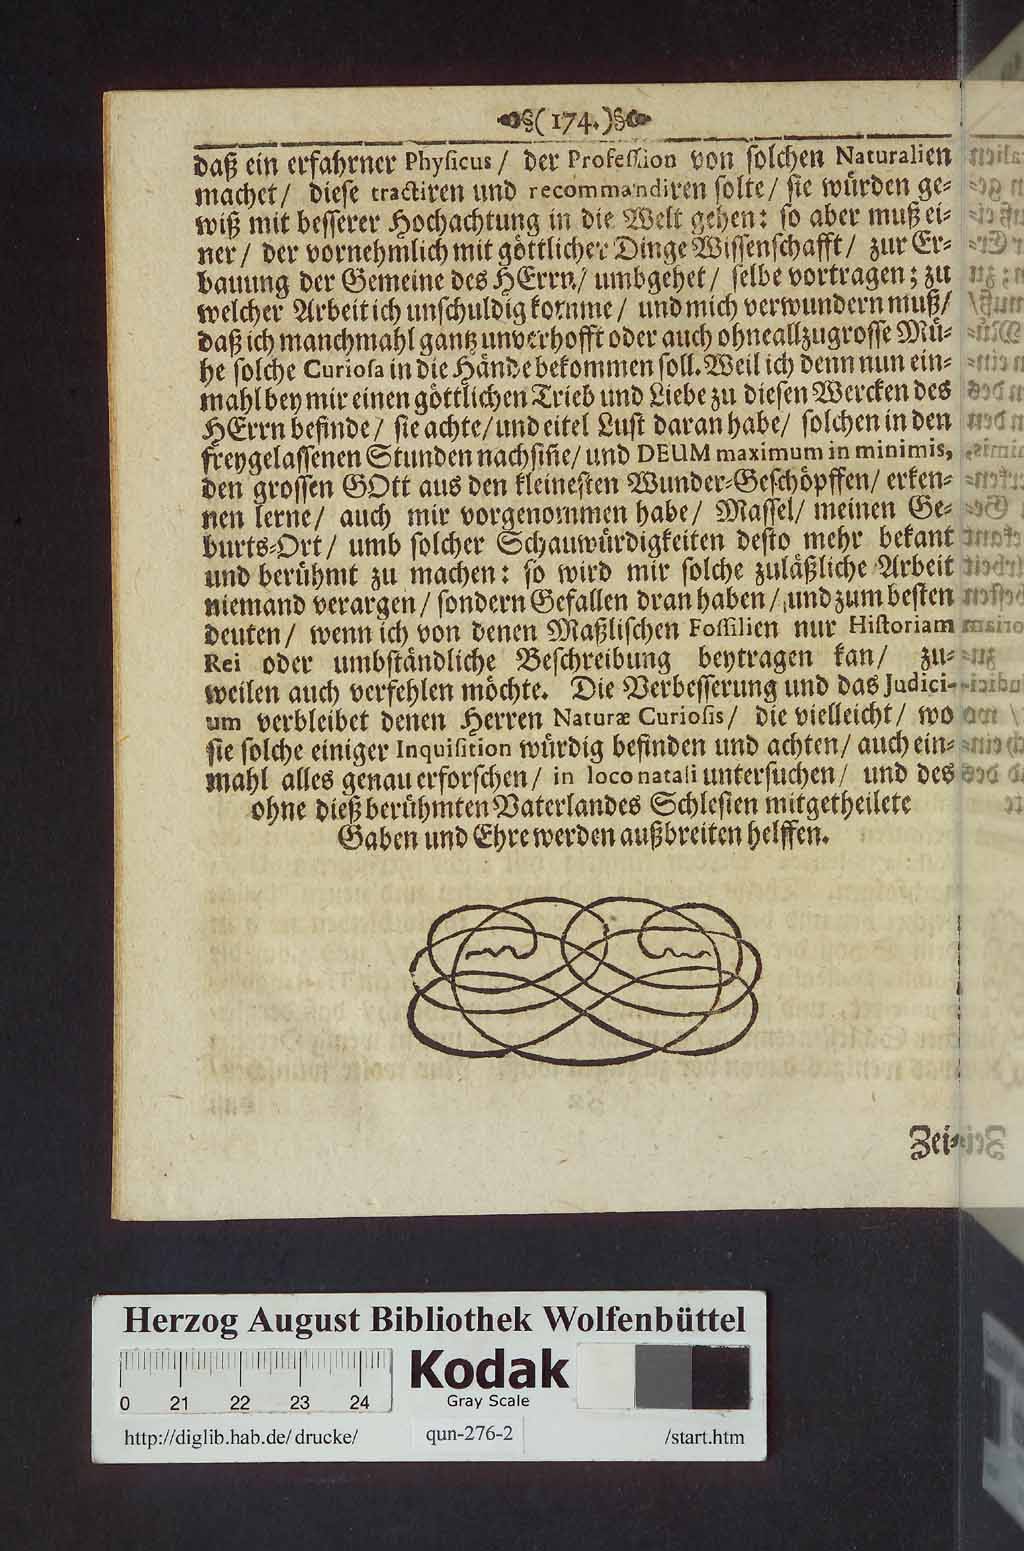 (174.)
daß ein erfahrner Physicus/ der Profession von solchen Naturalien
machet/ diese tractiren und recommandiren solte/ sie würden ge-
wiß mit besserer Hochachtung in die Welt gehen: so aber muß ei-
ner/ der vornehmlich mit göttlicher Dinge Wissenschafft/ zur Er-
bauung der Gemeine des HErrn/ umbgehet/ selbe vortragen; zu
welcher Arbeit ich unschuldig komme/ und mich verwundern muß/
daß ich manchmahl gantz unverhofft oder auch ohne allzugrosse Mü-
he solche Curiosa in die Hände bekommen soll. Weil ich denn nun ein-
mahl bey mir einen göttlichen Trieb und Liebe zu diesen Wercken des
HErrn befinde/ sie achte/ und eitel Lust daran habe/ solchen in den
freygelassenen Stunden nachsinne/ und DEUM maximum in minimis,
den grossen GOtt aus den kleinesten Wunder-Geschöpffen/ erken-
nen lerne/ auch mir vorgenommen habe/ Massel/ meinen Ge-
burts-Ort/ umb solcher Schauwürdigkeiten desto mehr bekant
und berühmt zu machen: so wird mir solche zuläßliche Arbeit
niemand verargen/ sondern Gefallen dran haben/ und zum besten
deuten/ wenn ich von denen Maßlischen Fossilien nur Historiam
Rei oder umbständliche Beschreibung beytragen kan/ zu-
weilen auch verfehlen möchte. Die Verbesserung und das Judici-
um verbleibet denen Herren Naturæ Curiosis/ die vielleicht/ wo
sie solche einiger Inquisition würdig befinden und achten/ auch ein-
mahl alles genau erforschen/ in loco natali untersuchen/ und des
ohne dieß berühmten Vaterlandes Schlesien mitgetheilete
Gaben und Ehre werden außbreiten helffen.
Zei-
Herzog August Bibliothek Wolfenbüttel
Kodak
Gray Scale
0 21 22 23 24
http://diglib.hab.de/drucke/ qun-276-2 /start.htm